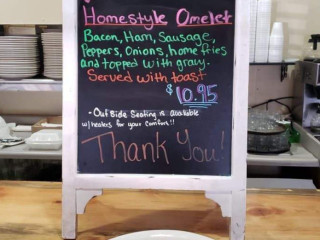 Homestyle Omelet
Bacon, Ham, Sausage,
Peppers, Onions, home fries
and topped with gravy.
Served with toast
$10.95
- Outside Seating is available
w/heaters for your comfort!!
Thank You!